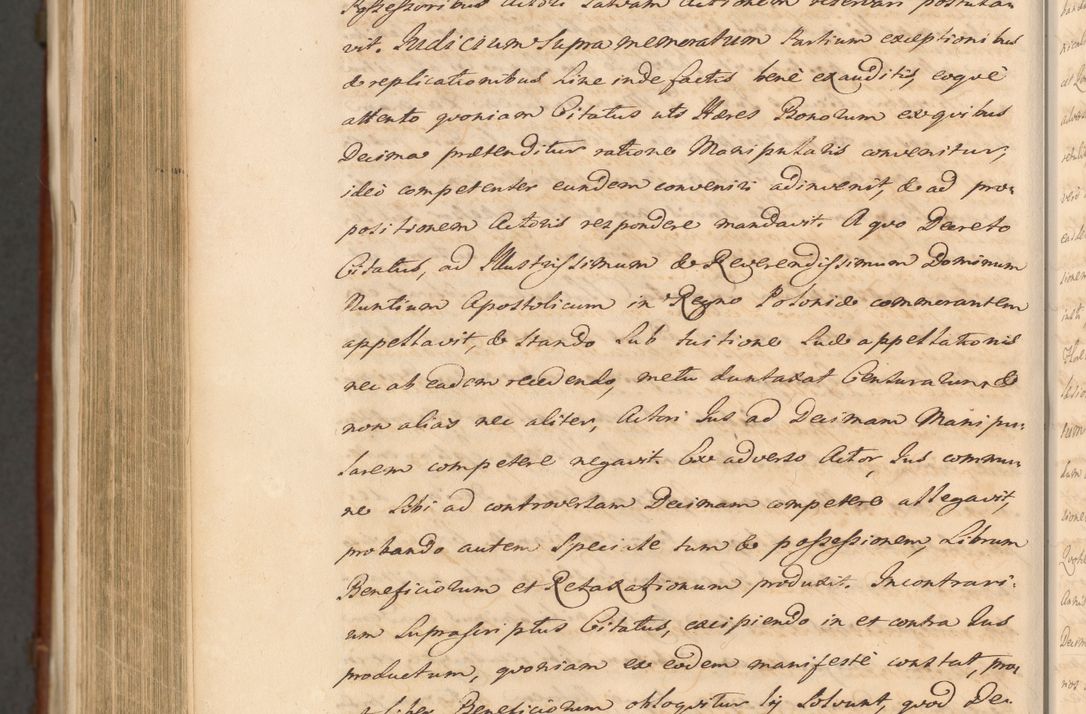 Possessoribus Actori salvam actionem reservari postula-
vit. Judicium supra memoratum Partium exceptionibus
& replicationibus hinc inde factis benè exauditis, eoquè
attento quoniam Citatus uti Hæres Bonorum ex quibus
Decima prætenditur ratione Manipularis convenitur,
ideò competenter eundem conveniri adinvenit, & ad pro-
positionem Actoris respondere mandavit. A quo Decreto
Citatus, ad Illustrissimum & Reverendissimum Dominum
Nuntium Apostolicum in Regno Poloniæ commorantem
appellavit, & stando sub tuitione suæ appellationis
nec ab eadem recedendo, metu duntaxat Censurarum &
non alias nec aliter, Actori Jus ad Decimam Manipu-
larem competere negavit. Ex adverso Actor, Jus commu-
ne sibi ad controversam Decimam competere allegavit,
probando autem speciale tum & possessionem, Librum
Beneficiorum et Retaxationum produxit. In contrari-
um suprascriptus Citatus, excipiendo in et contra Jus
productum, quoniam ex eodem manifestè constat, pro-
Liber Beneficiorum obloquitur iis solvunt, quod De-